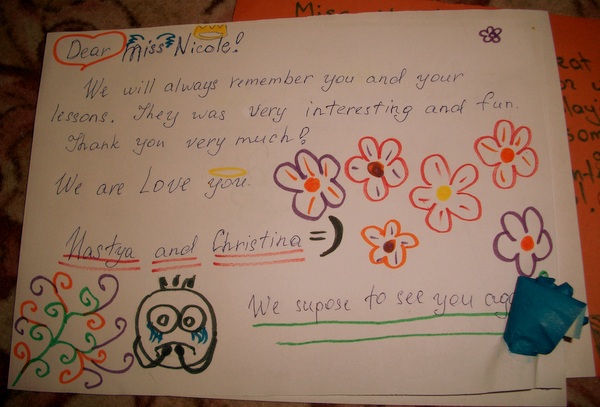 Dear miss Nicole!
We will always remember you and your
lessons. They was very interesting and fun.
Thank you very much!
We are Love you.
Nastya and Christina =)
We supose to see you